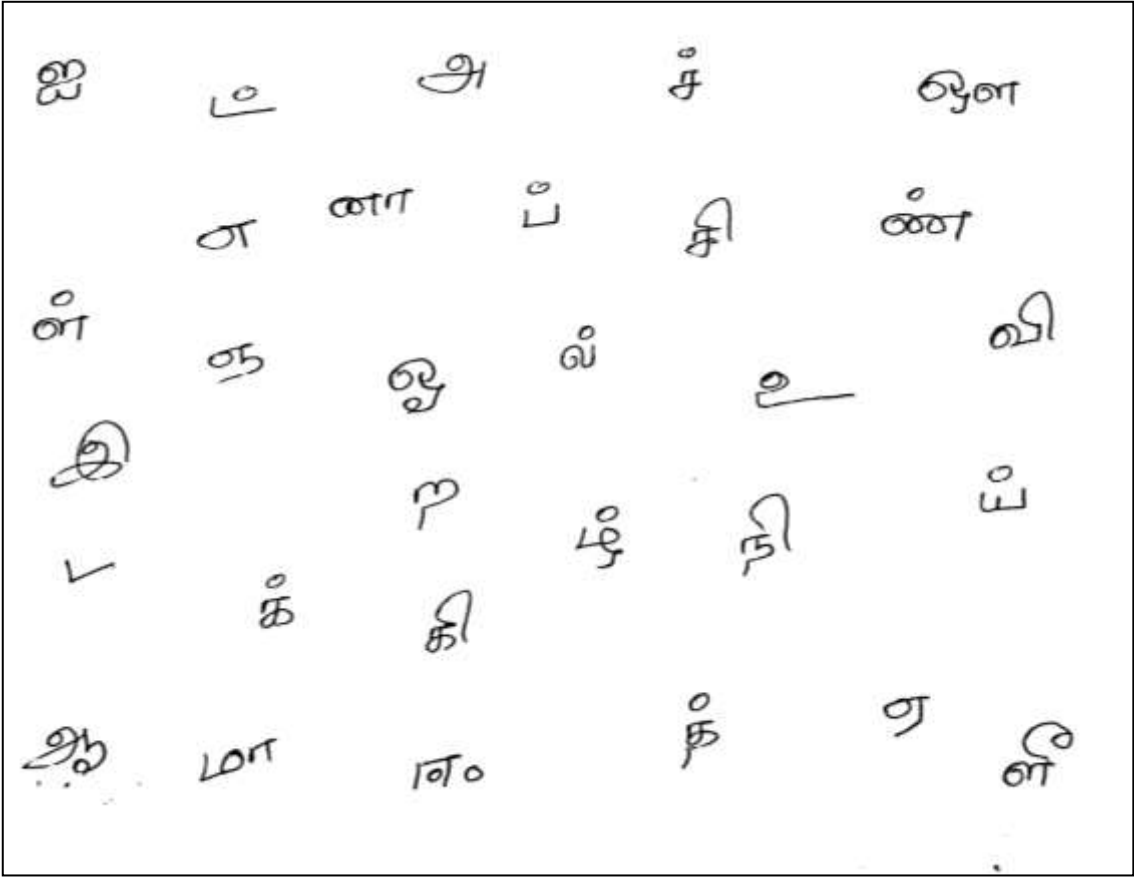 ஐ ட் அ ச் ஔ
எ னா ப் சி ண்
ள் ஓ ல் உ வி
இ ற ழ் நி ய்
ட க் கி
ஆ மா ஈ த் ஏ ளீ